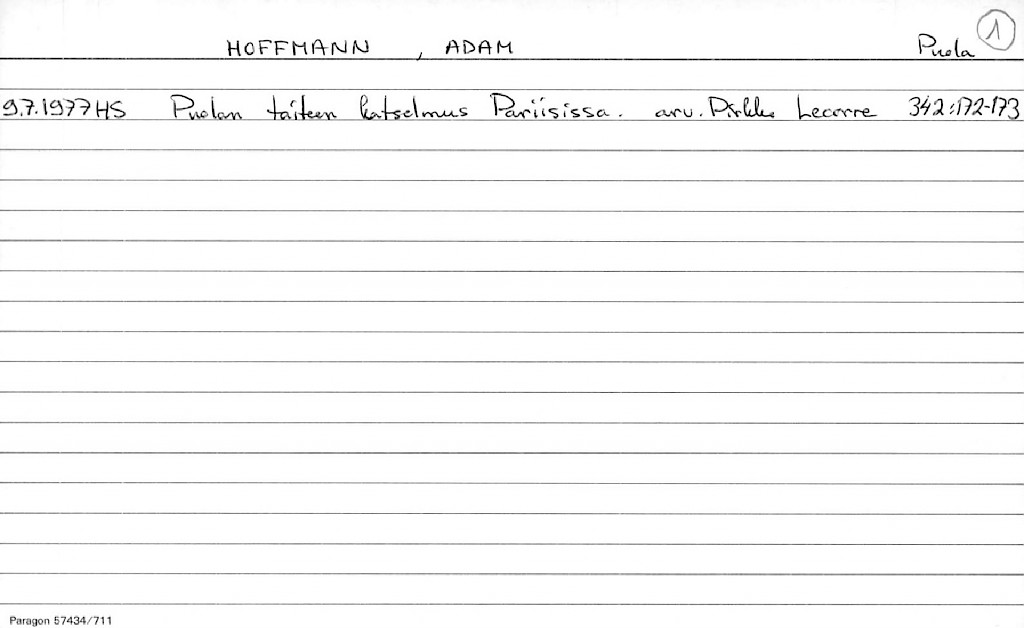 HOFFMANN , ADAM Puola 1
9.7.1977 HS Puolan taiteen katselmus Pariisissa. arv. Pirkko Lecorre 342:172-173
Paragon 57434/711